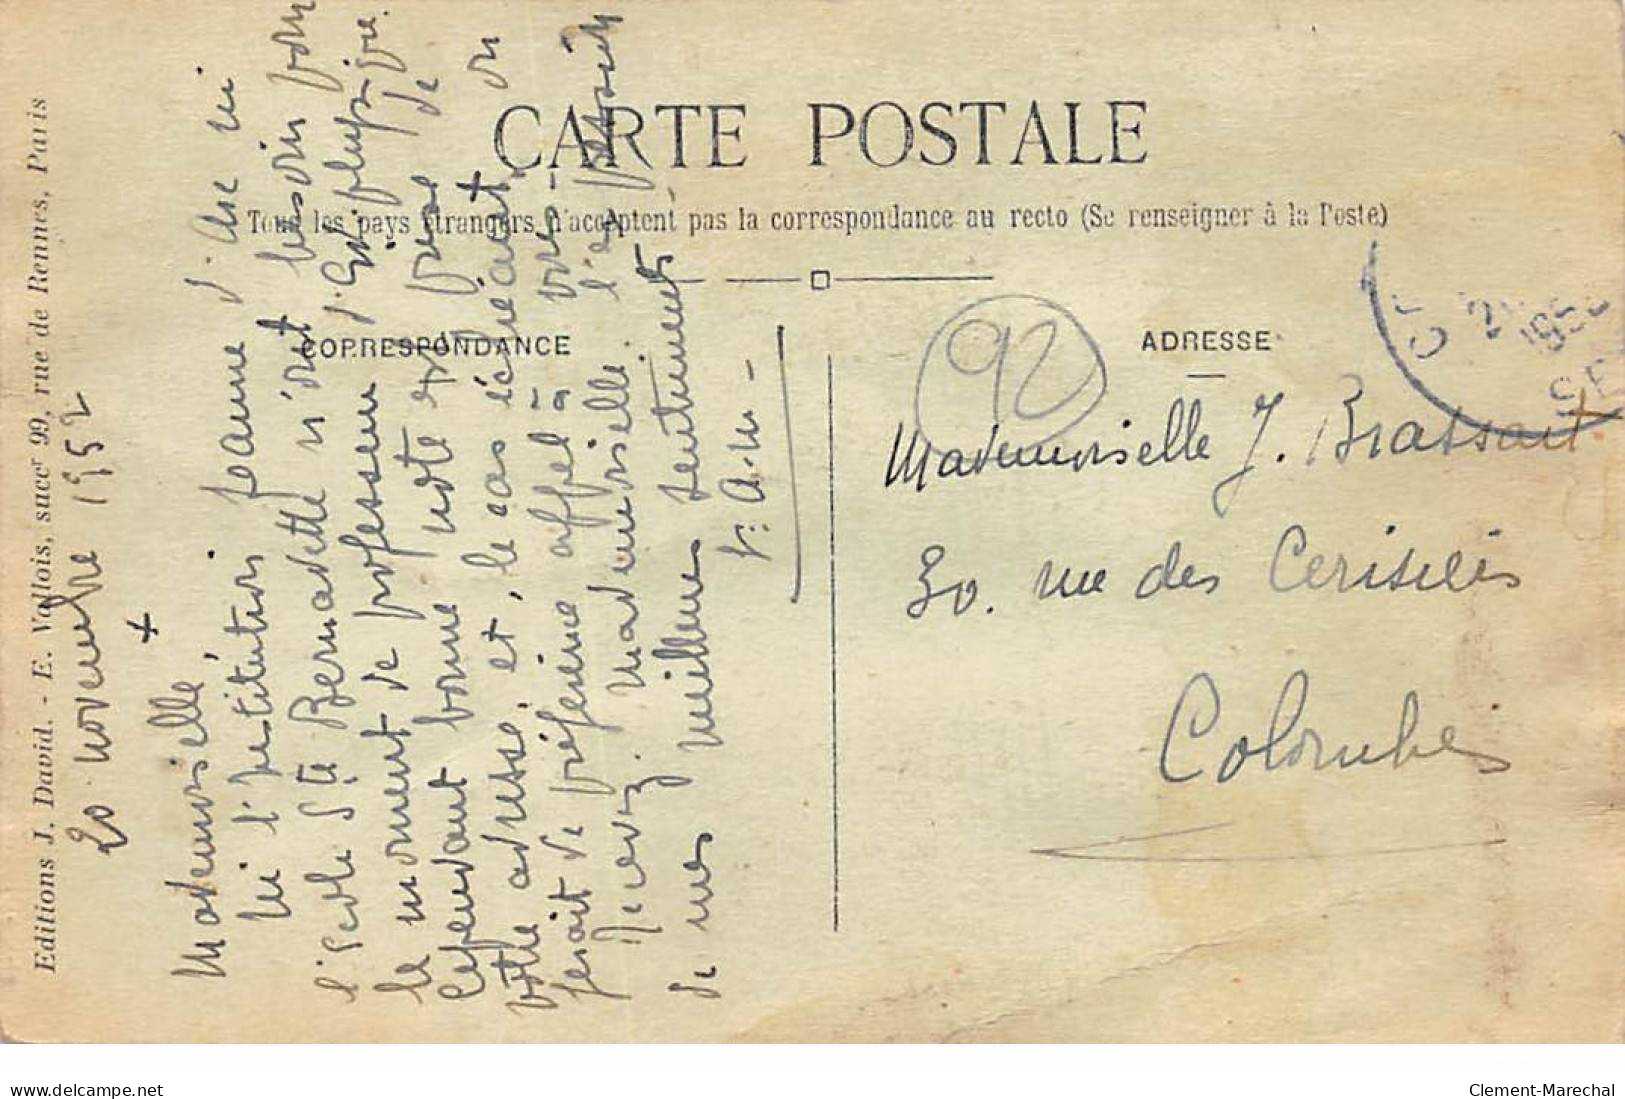 Editions J. David. - E. Vallois, succʳ 99, rue de Rennes, Paris
CARTE POSTALE
Tous les pays étrangers n'acceptent pas la correspondance au recto (Se renseigner à la Poste)
CORRESPONDANCE
ADRESSE
20 novembre 1952
+
Mademoiselle
Ni l'Institution Jeanne d'Arc ni
l'Ecole Ste Bernadette n'ont besoin pour
le moment de professeur d'Ed. physique.
Cependant bonne note est prise de
votre adresse, et, le cas échéant, on
ferait de préférence appel à vous -
Recevez Mademoiselle l'expression
de mes meilleurs sentiments
92
Mademoiselle J. Brassart
30. rue des Cerisiers
Colombes
delcampe.net
Clement-Marechal